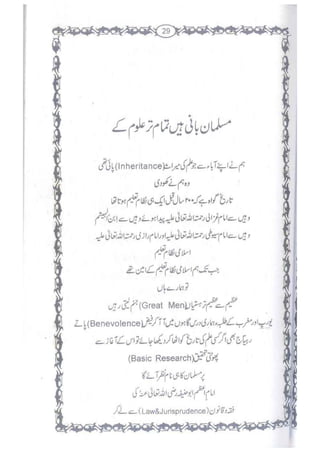 29
مسلمان بانی ہیں تمام تر علوم کے
ہم نے اپنے آباء سے جو علم کی میراث (Inheritance) پائی تھی
وہ ہم نے کھو دی
تاریخ گواہ ہے کہ ۲۰۰ سال قبل ایک ہی نظام تعلیم ہوتا تھا
وہیں سے امام غزالی رحمتہ اللہ تعالیٰ علیہ پیدا ہوئے وہیں سے ابن الہیثم
وہیں سے امام سیوطی رحمتہ اللہ تعالیٰ علیہ اور امام رازی رحمتہ اللہ تعالیٰ علیہ
اسلامی نظام تعلیم
جب تک ہم اسلامی نظام تعلیم کے امین تھے
تو ہمارے ہاں
عظیم سے عظیم تر ہستیاں (Great Men) جنم لیتی رہیں
یورپ اور مغرب کے طلبہ ہماری درس گاہوں میں آ کر فیض (Benevolence) پاتے
رہے آج بھی اگر کسی علم کی تاریخ کو اٹھا کر دیکھا جائے تو اس کے آغاز سے
پھوٹی تحقیق (Basic Research)
پر مسلمان کا ہی نام نظر آئے گا
امام اعظم ابو حنیفہ رضی اللہ تعالیٰ عنہ کی
فقہ و قانون (Law&Jurisprudence) سے لے کر